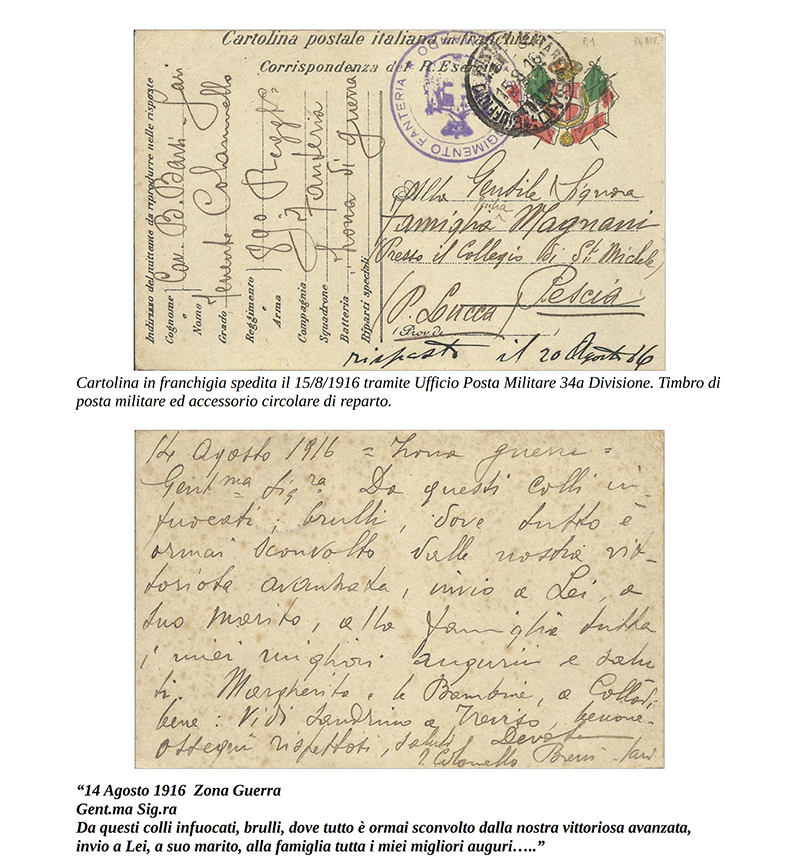 P.1
34 DIV.
Cartolina postale italiana in franchigia
Corrispondenza del R. Esercito
REGGIMENTO FANTERIA
Indirizzo del mittente da riprodurre nelle risposte
Cognome Cav. B. Barsi - Lari
Nome
Grado Tenente Colonnello
Reggimento 89o Regg.
Arma Fanteria
Compagnia
Squadrone Zona di guerra
Batteria
Riparti speciali
Alla Gentile Signora
Famiglia Magnani
Presso il Collegio di S. Michele
(P. Lucca) Pescia
(Prov. di
risposto il 20 Agosto 16
Cartolina in franchigia spedita il 15/8/1916 tramite Ufficio Posta Militare 34a Divisione. Timbro di
posta militare ed accessorio circolare di reparto.
14 Agosto 1916 = Zona guerra =
Gent.ma Sig.ra Da questi colli in-
fuocati, brulli, dove tutto è
ormai sconvolto dalle nostra vit-
toriosa avanzata, invio a Lei, a
suo marito, alla famiglia tutta
i miei migliori augurii e salu
ti. Margherita e le Bambine, a Collodi
bene: Vidi Sandrino a Treviso, benone-
ossequi rispettosi, saluti Devoto
Colonnello
“14 Agosto 1916 Zona Guerra
Gent.ma Sig.ra
Da questi colli infuocati, brulli, dove tutto è ormai sconvolto dalla nostra vittoriosa avanzata,
invio a Lei, a suo marito, alla famiglia tutta i miei migliori auguri…..”